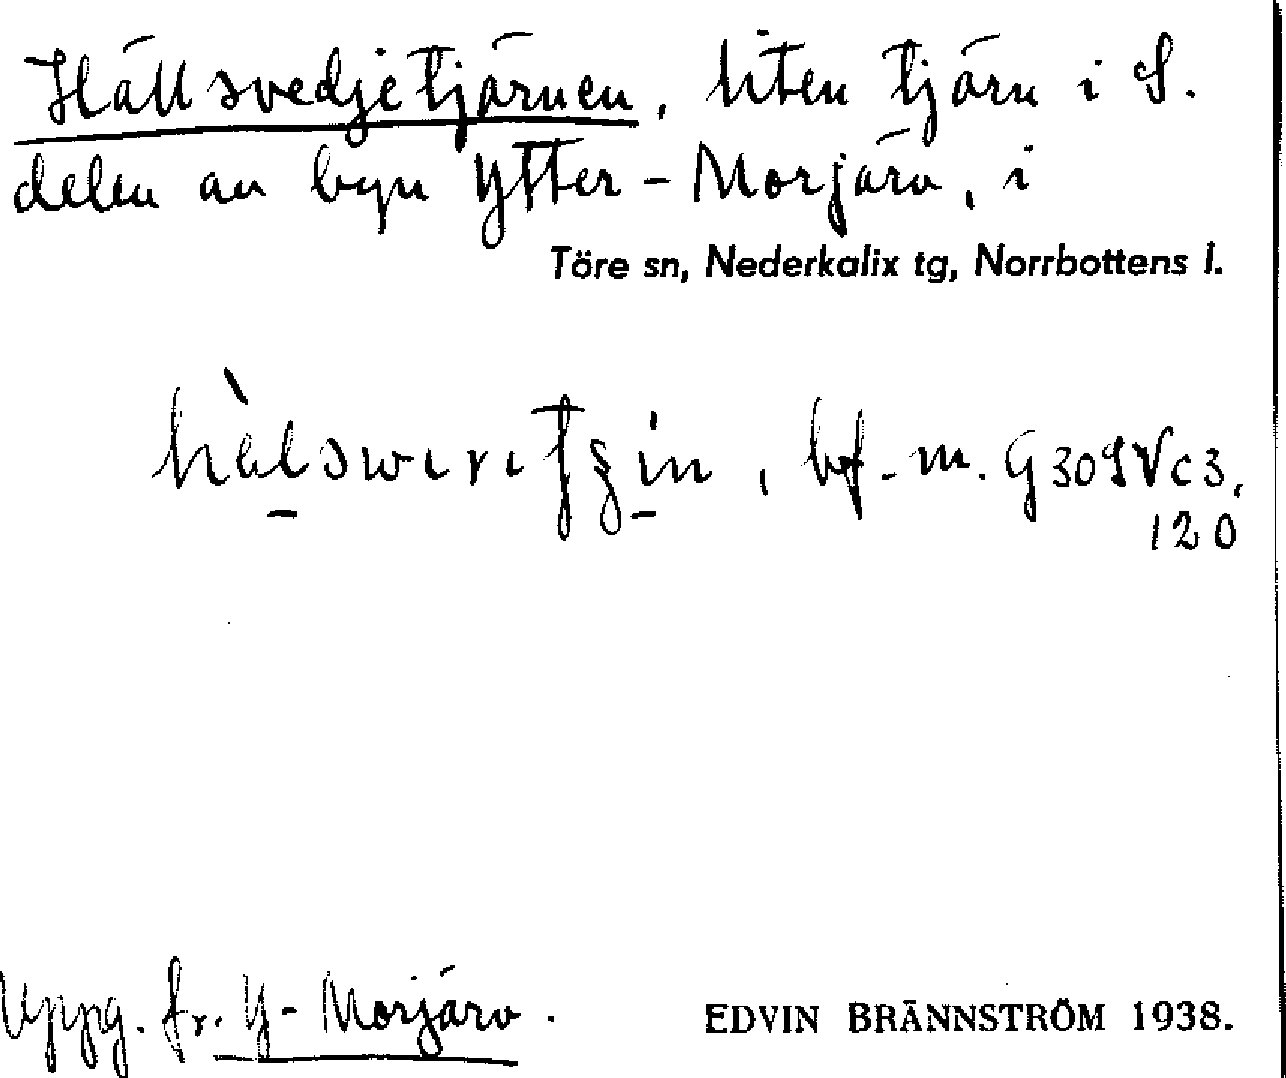 Hällsvedjetjärnen, liten tjärn i S.
delen av byn Ytter-Morjärv, i
Töre sn, Nederkalix tg, Norrbottens l.
bf. m. G30SVc3,
120
Uppg. fr. Y-Morjärv.
EDVIN BRÄNNSTRÖM 1938.